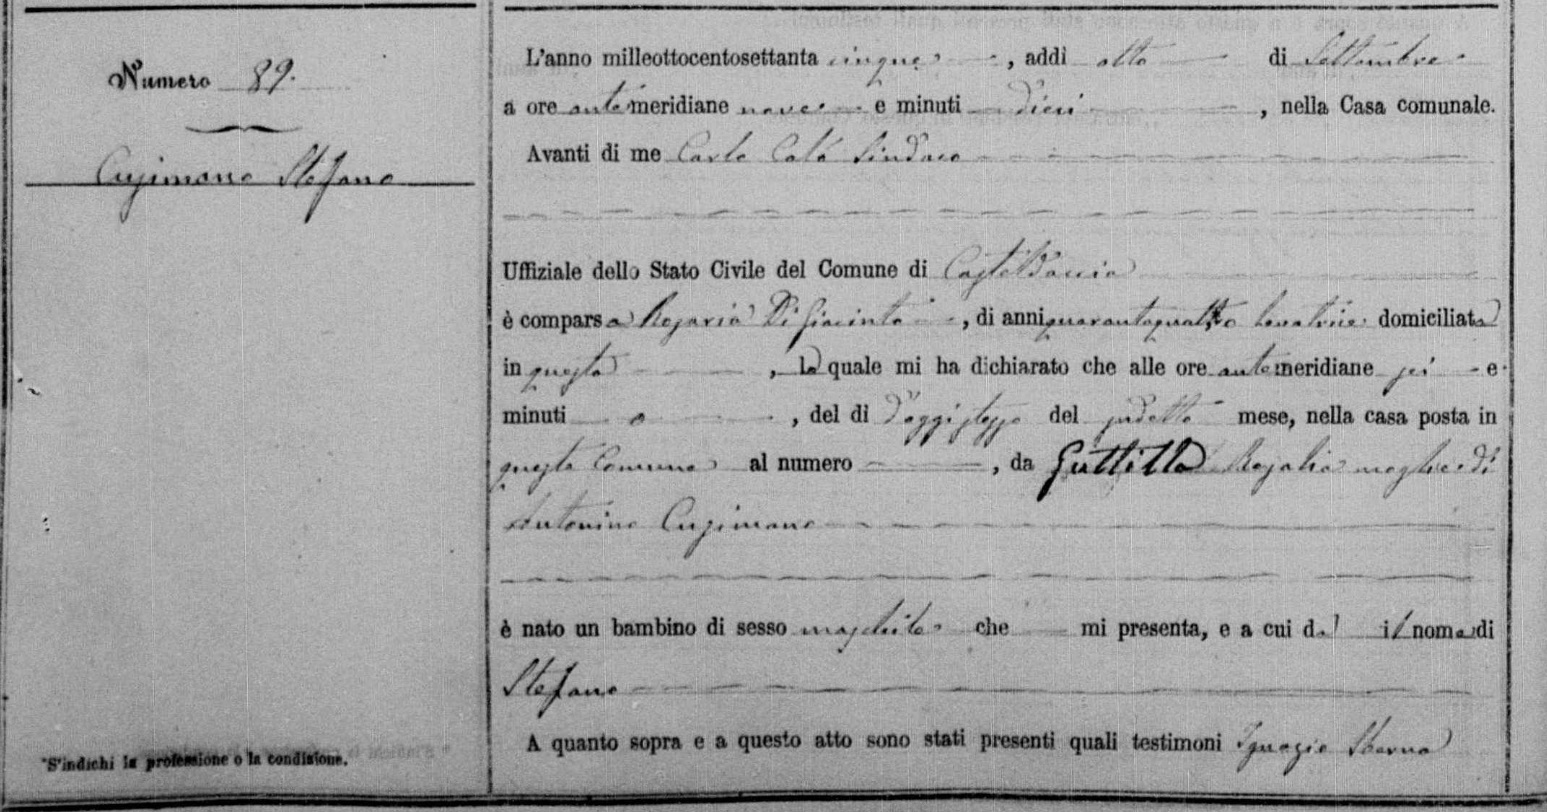 Numero 89.
Cusimano Stefano
L'anno milleottocentosettanta cinque, addi otto di Settembre
a ore antemeridiane nove e minuti dieci, nella Casa comunale.
Avanti di me Carlo Calà Sindaco
Uffiziale dello Stato Civile del Comune di Casteldaccia
è comparsa Rosaria Di Giacinto, di anni quarantaquattro levatrice domiciliata
in questa, la quale mi ha dichiarato che alle ore antemeridiane sei e
minuti o, del di d'oggi stesso del sudetto mese, nella casa posta in
questo Comune al numero, da Guttilla Rosalia moglie di
Antonino Cusimano
è nato un bambino di sesso maschile che mi presenta, e a cui dà il nome di
Stefano
A quanto sopra e a questo atto sono stati presenti quali testimoni Ignazio
*S'indichi la professione o la condizione.